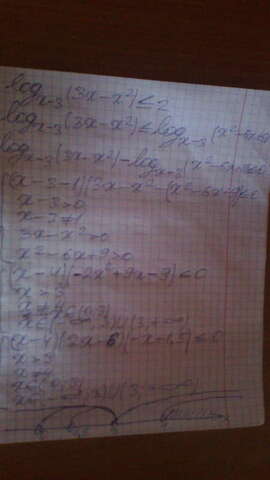 log_{x-3}(3x-x²)≤2
log_{x-3}(3x-x²)≤log_{x-3}(x²-6x+9)
log_{x-3}(3x-x²)-log_{x-3}(x²-6x+9)≤0
(x-3-1)(3x-x²-(x²-6x+9)≤0
x-3>0
x-3≠1
3x-x²>0
x²-6x+9>0
(x-4)(-2x²+9x-9)≤0
x>3
x≠4
x∈(0;3)
x∈(-∞;3)∪(3;+∞)
(x-4)(2x-6)(-x+1,5)≤0
x>3
x≠4
x∈(0;3)
x∈(-∞;3)∪(3;+∞)